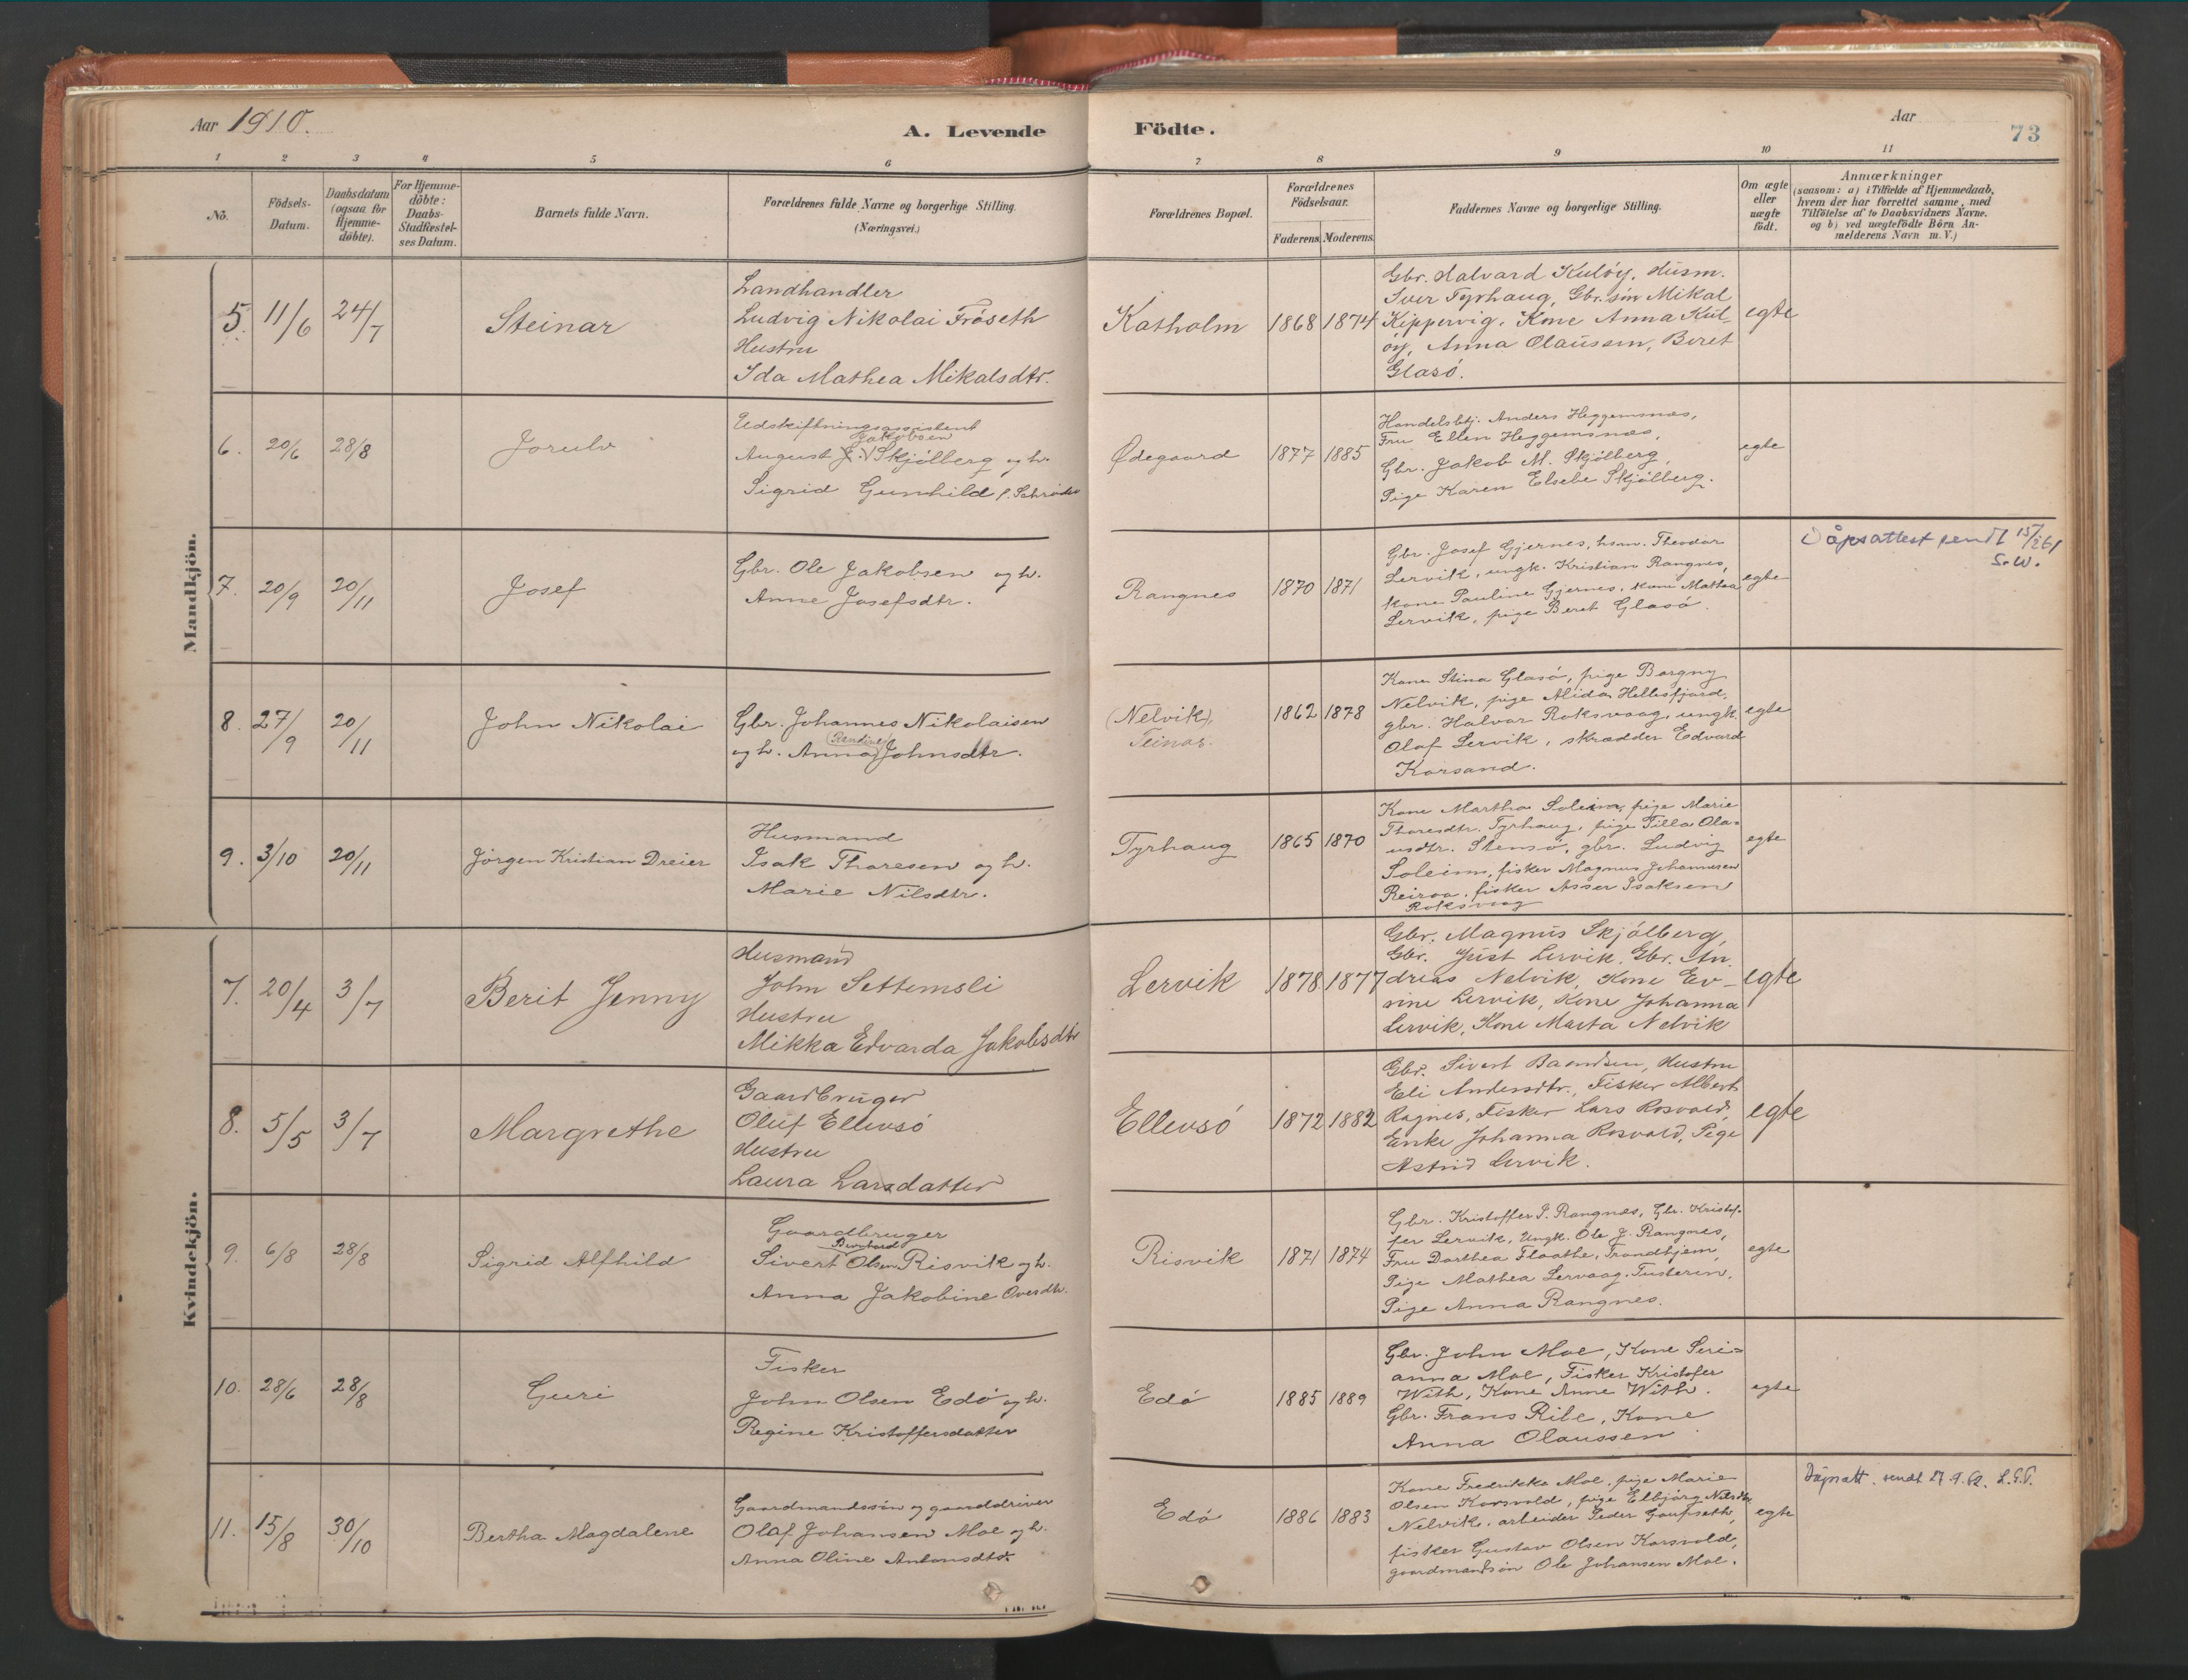 Aar 1910.
A. Levende
Födte.
Aar
73
1 2 3 4 5 6 7 8 9 10 11
No.
Födsels-
Datum.
Daabsdatum
(ogsaa for
Hjemme-
döbte).
For Hjemme-
döbte:
Daabs-
Stadfæstel-
ses Datum.
Barnets fulde Navn.
Forældrenes fulde Navne og borgerlige Stilling.
(Næringsvei.)
Forældrenes Bopæl.
Forældrenes
Födselsaar.
Faderens. Moderens.
Faddernes Navne og borgerlige Stilling.
Om ægte
eller
uægte
födt.
Anmærkninger
(saasom: a) i Tilfælde af Hjemmedaab,
hvem der har forrettet samme, med
Tilföielse af to Daabsvidners Navne.
og b) ved uægtefödte Börn An-
melderens Navn m. V.)
Mandkjön.
5. 11/6 24/7
Steinar
Landhandler
Ludvig Nikolai Fröseth
Hustru
Ida Mathea Mikalsdtr.
Katholm 1868 1874
Gbr. Halvard Kulöy, Husm.
Iver Tyrhaug, Gbr. sön Mikal
Kippervig, Kone Anna Kul-
öy, Anna Olaussen, Beret
Glasö.
egte
6. 20/6 28/8
Jorulv
Udskiftningsassistent
Jakobsen
August J. Skjölberg og h.
Sigrid Gunhild f. Schröder
Ødegaard 1877 1885
Handelsbtj. Anders Heggemsnæs,
Fru Ellen Heggemsnæs,
Gbr. Jakob M. Skjölberg,
Pige Karen Elsebe Skjölberg.
egte
7. 20/9 20/11
Josef
Gbr. Ole Jakobsen og h.
Anne Josefsdtr.
Rangnes 1870 1871
Gbr. Josef Gjernes, hsm. Theodor
Lervik, ungk. Kristian Rangnes,
kone Pauline Gjernes, kone Mathea
Lervik, pige Beret Glasö.
egte
Dåpsattest sendt 15/2 61
S.W.
8. 27/9 20/11
John Nikolai
Gbr. Johannes Nikolaisen
(Randine)
og h. Anna Johnsdtr.
(Nelvik),
Teinas.
1862 1878
Kone Stina Glasö, pige Borgny
Nelvik, pige Alida Hellesfjord,
gbr. Halvar Roksvaag, ungk.
Olaf Lervik, skrædder Edvard
Korsand.
egte
9. 3/10 20/11
Jörgen Kristian Dreier
Husmand
Isak Thoresen og h.
Marie Nilsdtr.
Tyrhaug 1865 1870
Kone Martha Soleim, pige Marie
Thoresdtr. Tyrhaug, pige Tilla Ola-
usdtr. Stensö, gbr. Ludvig
Soleim, fisker Magnus Johannesen
Reiroa, fisker Asser Isaksen
Roksvaag
egte
Kvindekjön.
7. 20/4 3/7
Berit Jenny
Husmand
John Settemsli
Hustru
Mikka Edvarda Jakobsdtr
Lervik 1878 1877
Gbr. Magnus Skjölberg,
Gbr. Just Lervik, Gbr. An-
dreas Nelvik, Kone Ev-
rine Lervik, Kone Johanna
Lervik, Kone Marta Nelvik
egte
8. 5/5 3/7
Margrethe
Gaardbruger
Oluf Ellevsö
Hustru
Laura Larsdatter
Ellevsö 1872 1882
Gbr. Sivert Baardsen, Hustru
Eli Andersdtr., Fisker Albert
Ragnes, Fisker Lars Rosvold,
Enke Johanna Rosvold, Pige
Astrid Lervik.
egte
9. 6/8 28/8
Sigrid Alfhild
Gaardbruger
Bernhard
Sivert Olsen Risvik og h.
Anna Jakobine Oversdtr.
Risvik 1871 1874
Gbr. Kristoffer P. Rangnæs, Gbr. Kristof-
fer Lervik, Ungk. Ole J. Rangnes,
Fru Dorthea Flaathe, Trondhjem,
Pige Mathea Lervaag, Tusteren,
Pige Anna Rangnes.
egte
10. 28/6 28/8
Guri
Fisker
John Olsen Edö og h.
Regine Kristoffersdatter
Edö 1885 1889
Gbr. John Moe, Kone Seri-
anna Moe, Fisker Kristofer
With, Kone Anne With.
Gbr. Frans Ribe, Kone
Anna Olaussen
egte
11. 15/8 30/10
Bertha Magdalene
Gaardmandssön og gaarddriver
Olaf Johansen Moe og h.
Anna Oline Antonsdtr.
Edö 1886 1883
Kone Fredrikke Moe, pige Marie
Olsen Korsvold, pige Elbjörg Nilsdtr
Nelvik, arbeider Peder Gaupseth,
fisker Gustav Olsen Korsvold,
gaardmandssön Ole Johansen Moe.
egte
Dåpsatt. sendt 27.9.62.